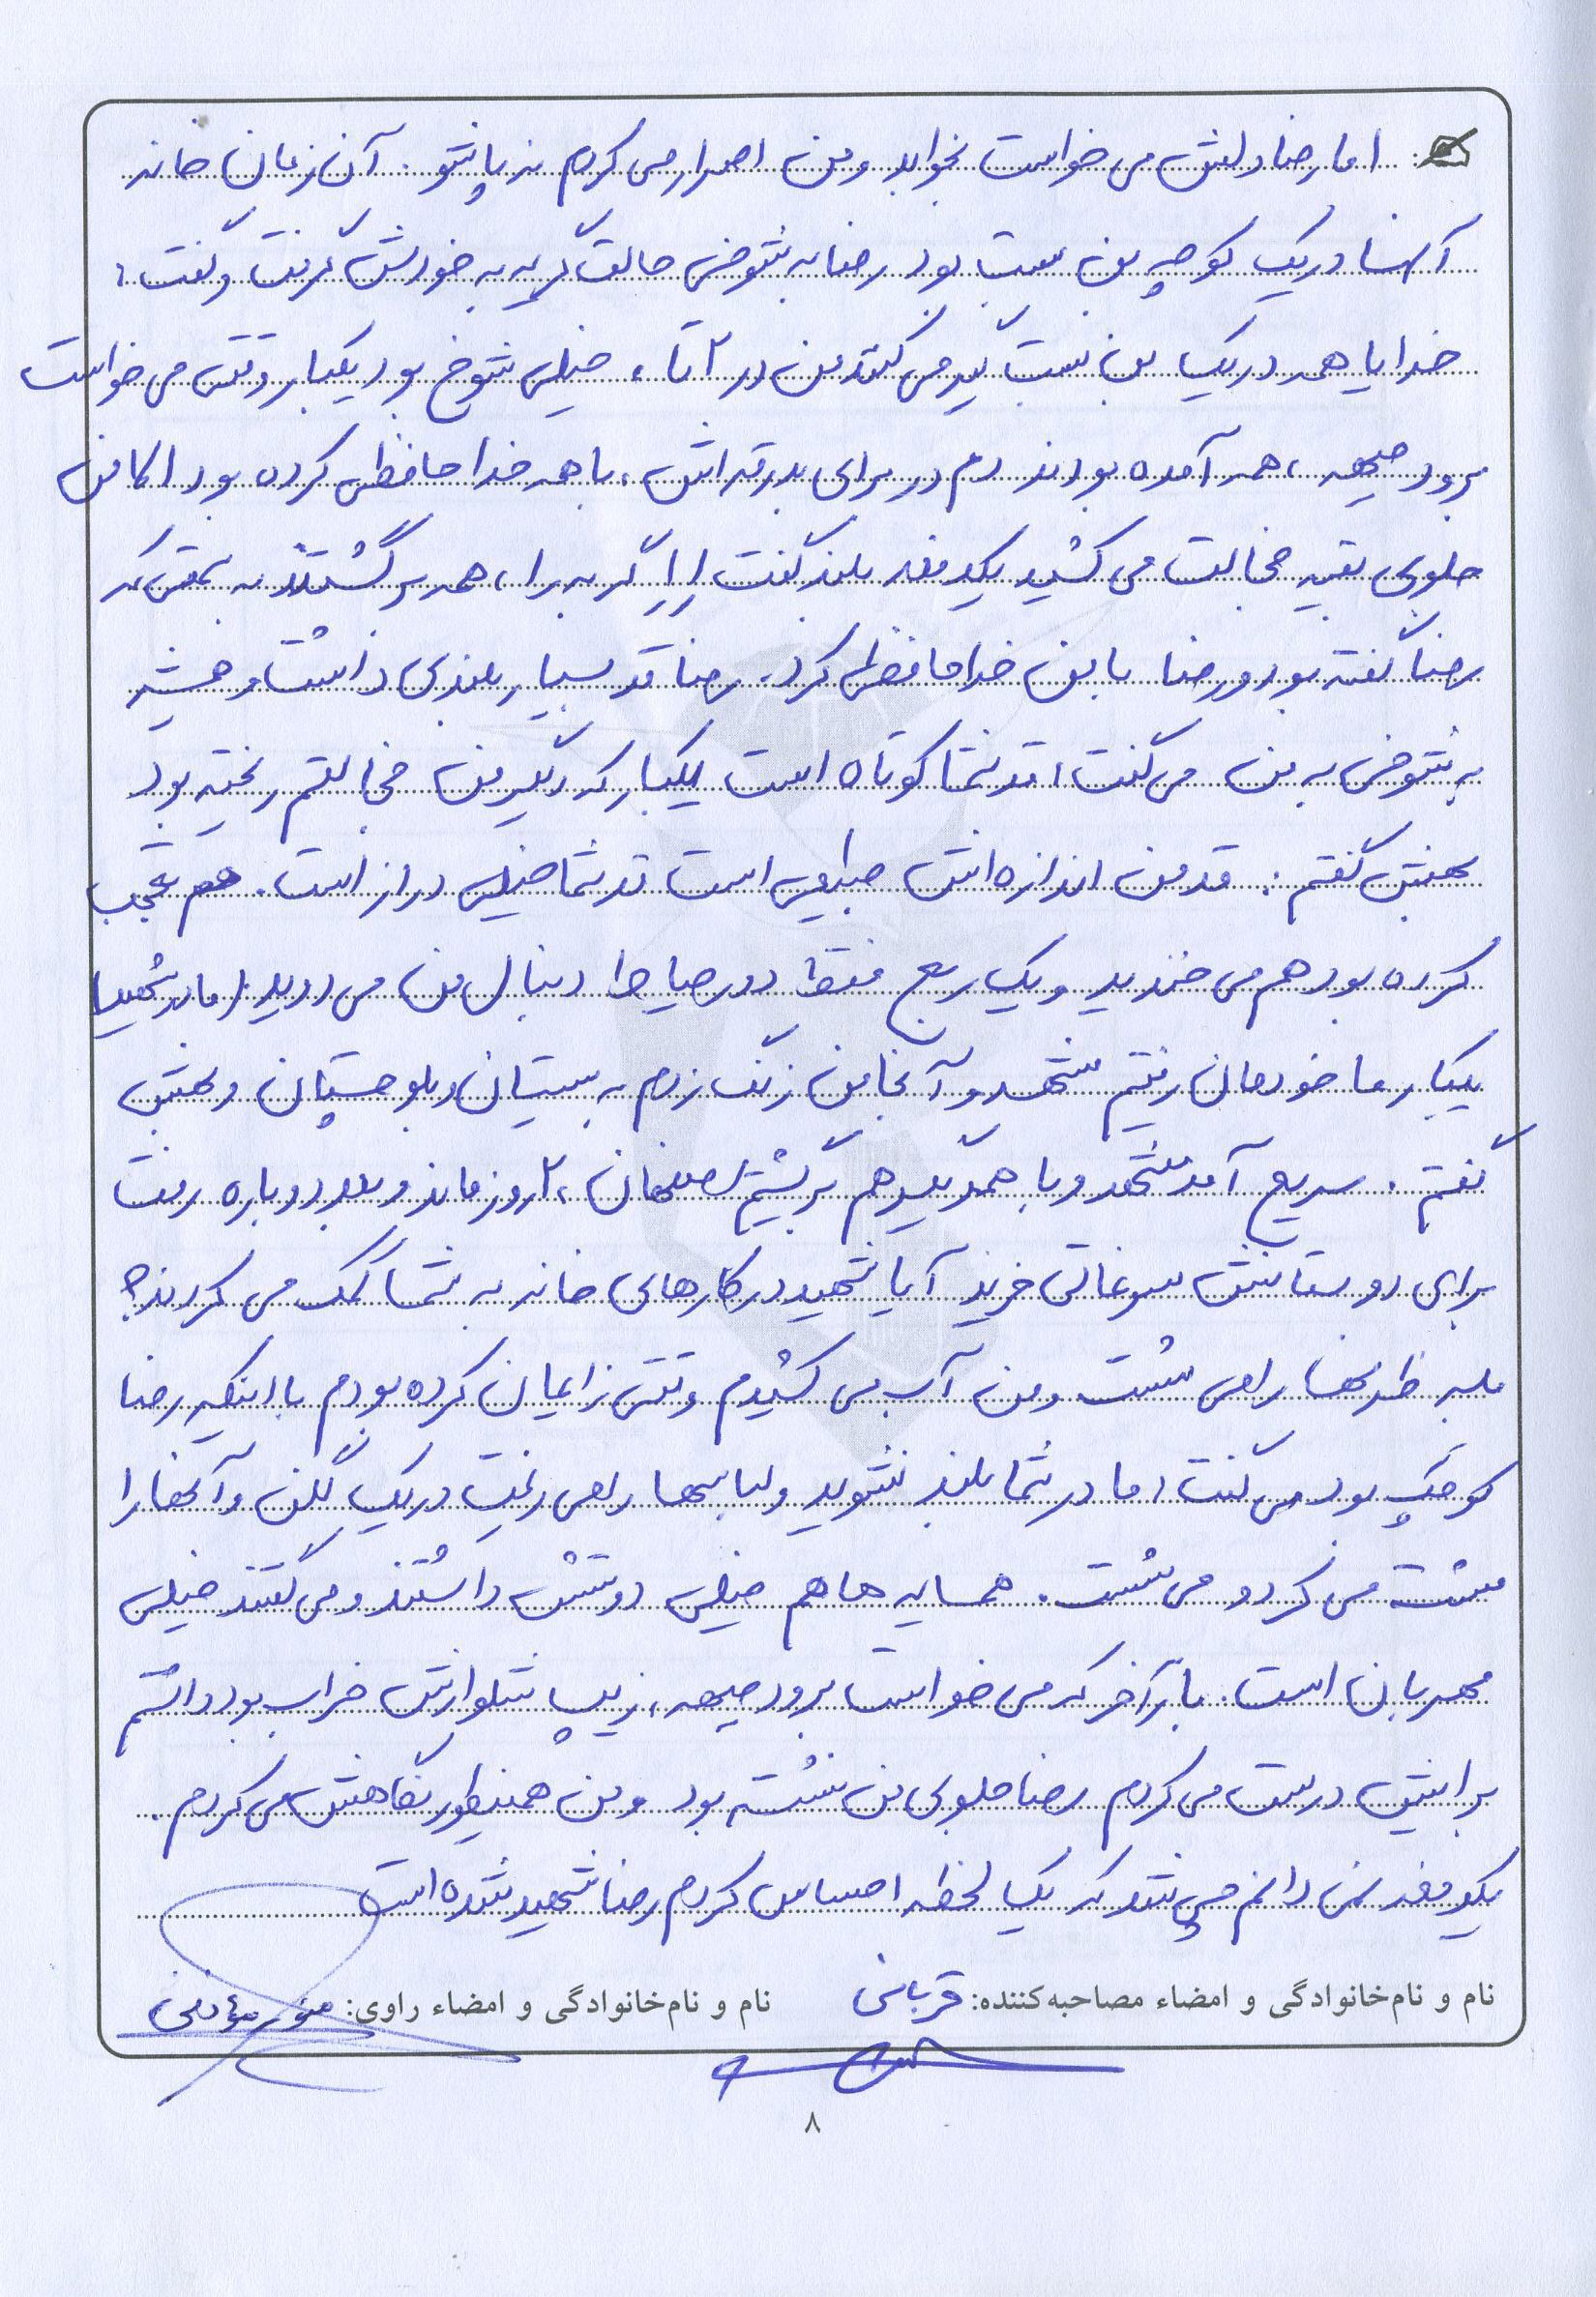 اما رضا دلش می خواست بخوابد و من اصرار می کردم نه پاشو. آن زمان خانه
آنها در یک کوچه بن بست بود رضا به شوخی حالت گریه به خودش گرفت و گفت:
خدایا همه در یک بن بست گیر می کنند من در ۲ تا، خیلی شوخ بود یکبار وقتی می خواست
برود جبهه، همه آمده بودند دم در برای بدرقه اش، با همه خداحافظی کرده بود الا من
جلوی بقیه خجالت می کشید یکدفعه بلند گفت اِاِ گربه را، همه برگشتند به سمتی که
رضا گفته بود و رضا با من خداحافظی کرد. رضا قد بسیار بلندی داشت و همیشه
به شوخی به من می گفت، قد شما کوتاه است یکبار که دیگر من خجالتم ریخته بود
بهش گفتم: قد من اندازه اش طبیعی است قد شما خیلی دراز است. هم تعجب
کرده بود هم می خندید و یک ربع فقط دور حیاط دنبال من می دوید. (مادر شهید)
یکبار ما خودمان رفتیم مشهد و آنجا من زنگ زدم به سیستان و بلوچستان و بهش
گفتم. سریع آمد مشهد و با همدیگر هم برگشتیم اصفهان، ۲ روز ماند و بعد دوباره رفت
برای دوستانش سوغاتی خرید آیا شهید در کارهای خانه به شما کمک می کردند؟
بله ظرفها را می شست و من آب می کشیدم وقتی زایمان کرده بودم با اینکه رضا
کوچک بود می گفت، مادر شما بلند نشوید و لباسها را می ریخت در یک لگن و آنها را
مشت می کرد و می شست. همسایه ها هم خیلی دوستش داشتند و می گفتند خیلی
مهربان است. بار آخر که می خواست برود جبهه، زیپ شلوارش خراب بود داشتم
برایش درست می کردم رضا جلوی من نشسته بود و من همینطور نگاهش می کردم.
یکدفعه نمی دانم چی شد که یک لحظه احساس کردم رضا شهید شده است
نام و نام‌خانوادگی و امضاء مصاحبه‌کننده: قربانی نام و نام‌خانوادگی و امضاء راوی:
۸